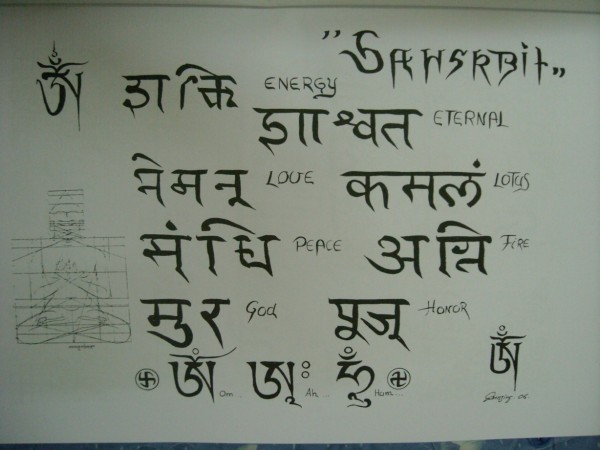 "SANSKRIT"
शक्ति ENERGY
शाश्वत ETERNAL
LOVE कमलं LOTUS
संधि PEACE अग्नि FIRE
सुर God पूज् HONOR
Om... Ah... Hum...